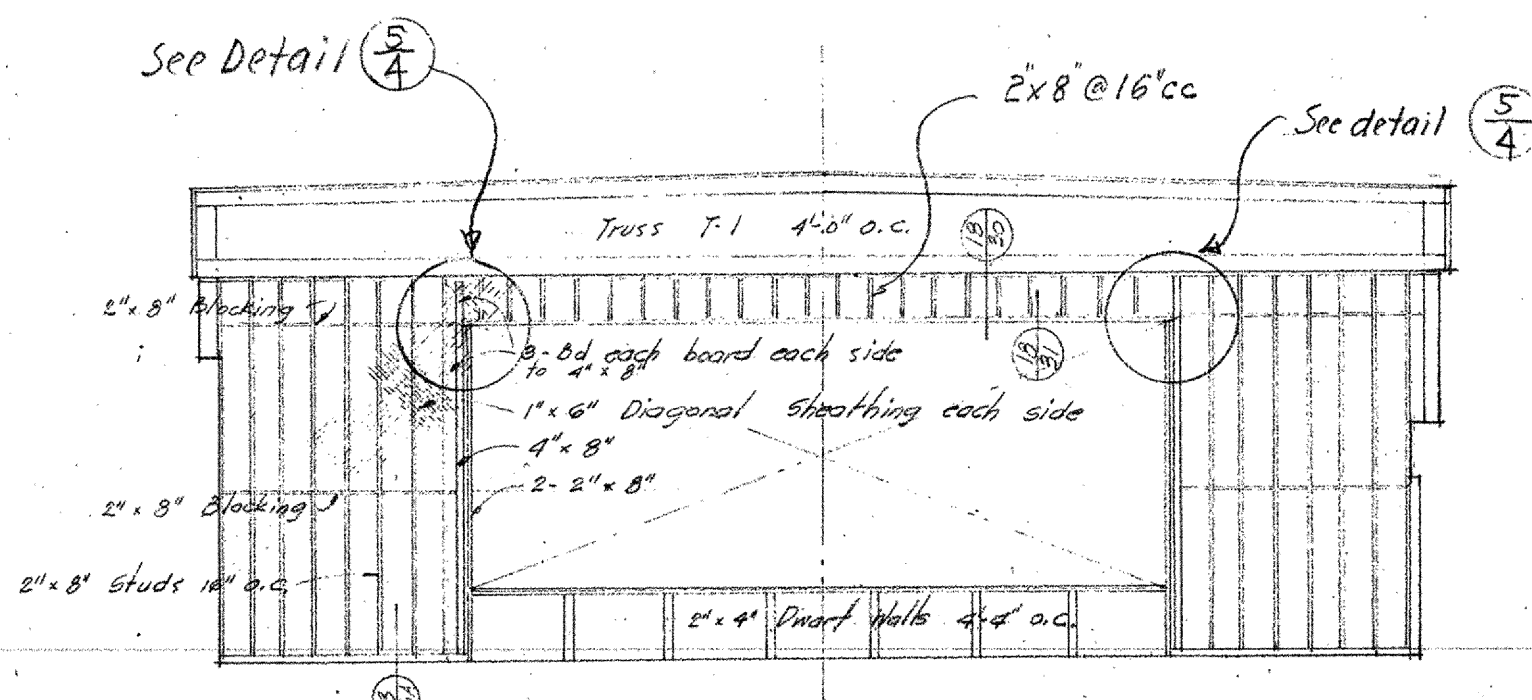 See Detail 5/4
2"x8"@16"cc
See detail 5/4
Truss T-1 4'-0" o.c.
2"x 8" Blocking
3-8d each board each side
to 4"x 8"
1"x 6" Diagonal Sheathing each side
4"x 8"
2- 2"x 8"
2"x 8" Blocking
2"x 8" Studs 16" o.c.
2"x 4" Dwarf Walls 4'-4" o.c.